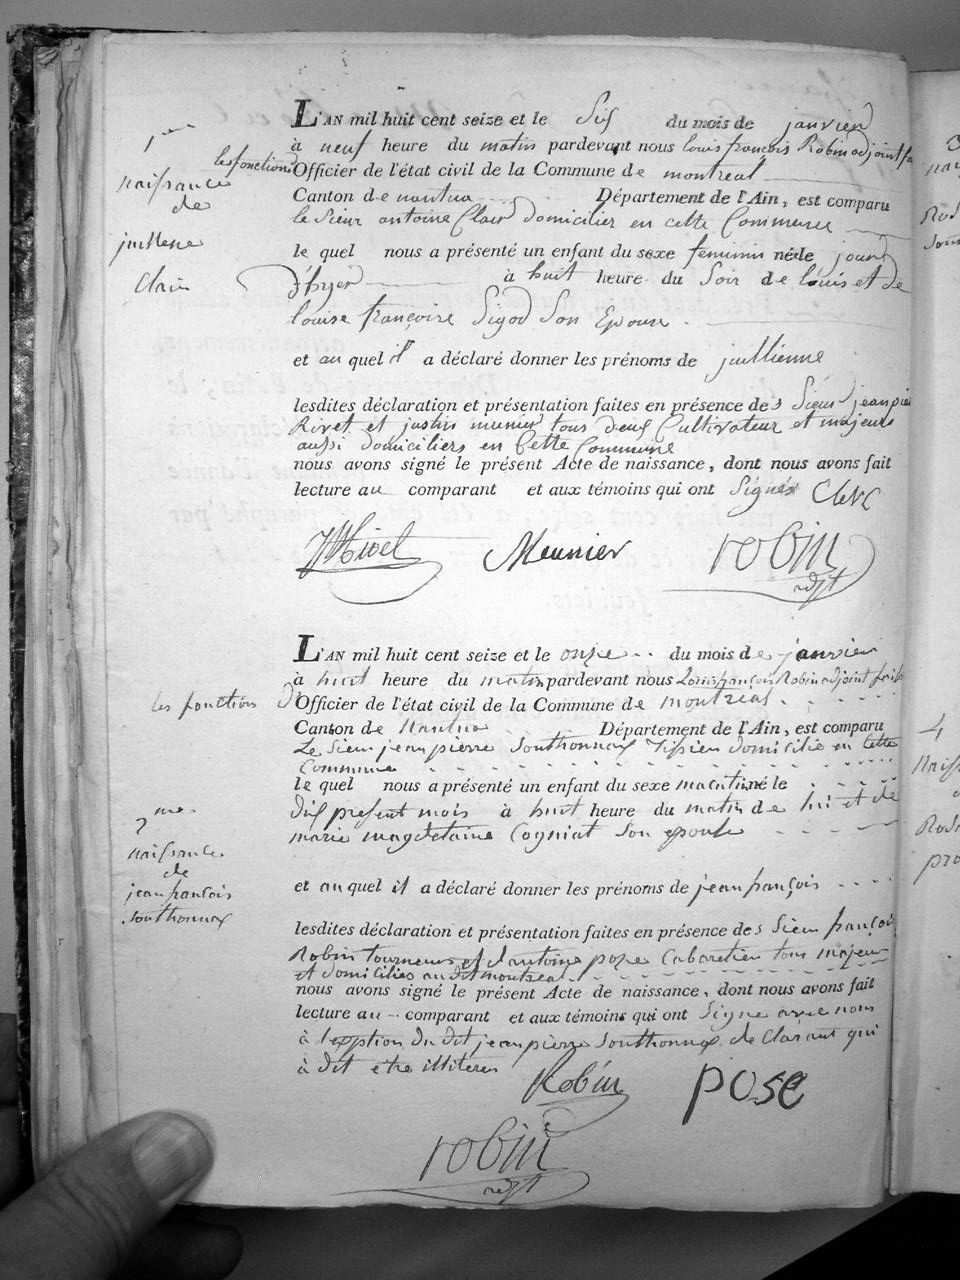 L'AN mil huit cent seize et le Six du mois de janvier
à neuf heure du matin pardevant nous louis françois Robin adjoint
les fonctions Officier de l'état civil de la Commune de montreal
Canton de nantua Département de l'Ain, est comparu
le Sieur antoine Clair domicilier en cette Commune
le quel nous a présenté un enfant du sexe feminin né de jour
d'hyer à huit heure du Soir de louis et de
louise françoise Sigod Son Epouse.
et au quel il a déclaré donner les prénoms de juillienne
lesdites déclaration et présentation faites en présence des Sieur jean
Rivet et justin munier tous deux Cultivateur et majeurs
aussi domiciliers en Cette Commune
nous avons signé le présent Acte de naissance, dont nous avons fait
lecture au comparant et aux témoins qui ont Signés Clerc
Meunier robin
naissance
de
juilliene
Clair
L'AN mil huit cent seize et le onze du mois de janvier
à huit heure du matin pardevant nous Louis françois Robin adjoint
les fonction D'Officier de l'état civil de la Commune de montreal
Canton de Nantua Département de l'Ain, est comparu
Le Sieur jean pierre Southonnax Tissier domicilié en Cette
Commune
le quel nous a présenté un enfant du sexe masculin né le
dix present mois à huit heure du matin de lui et de
marie magdelaine Cogniat son epouse
et au quel il a déclaré donner les prénoms de jean françois
lesdites déclaration et présentation faites en présence des Sieur françois
Robin tourneur et d'antoine poze Cabaretier tous majeur
et domiciliés au dit montreal
nous avons signé le présent Acte de naissance, dont nous avons fait
lecture au comparant et aux témoins qui ont Signe avec nous
à l'exption du dit jean pierre Southonnax declarant qui
à dit etre illiteres
Robin pose
robin
2me
naissance
de
jean françois
Southonnax